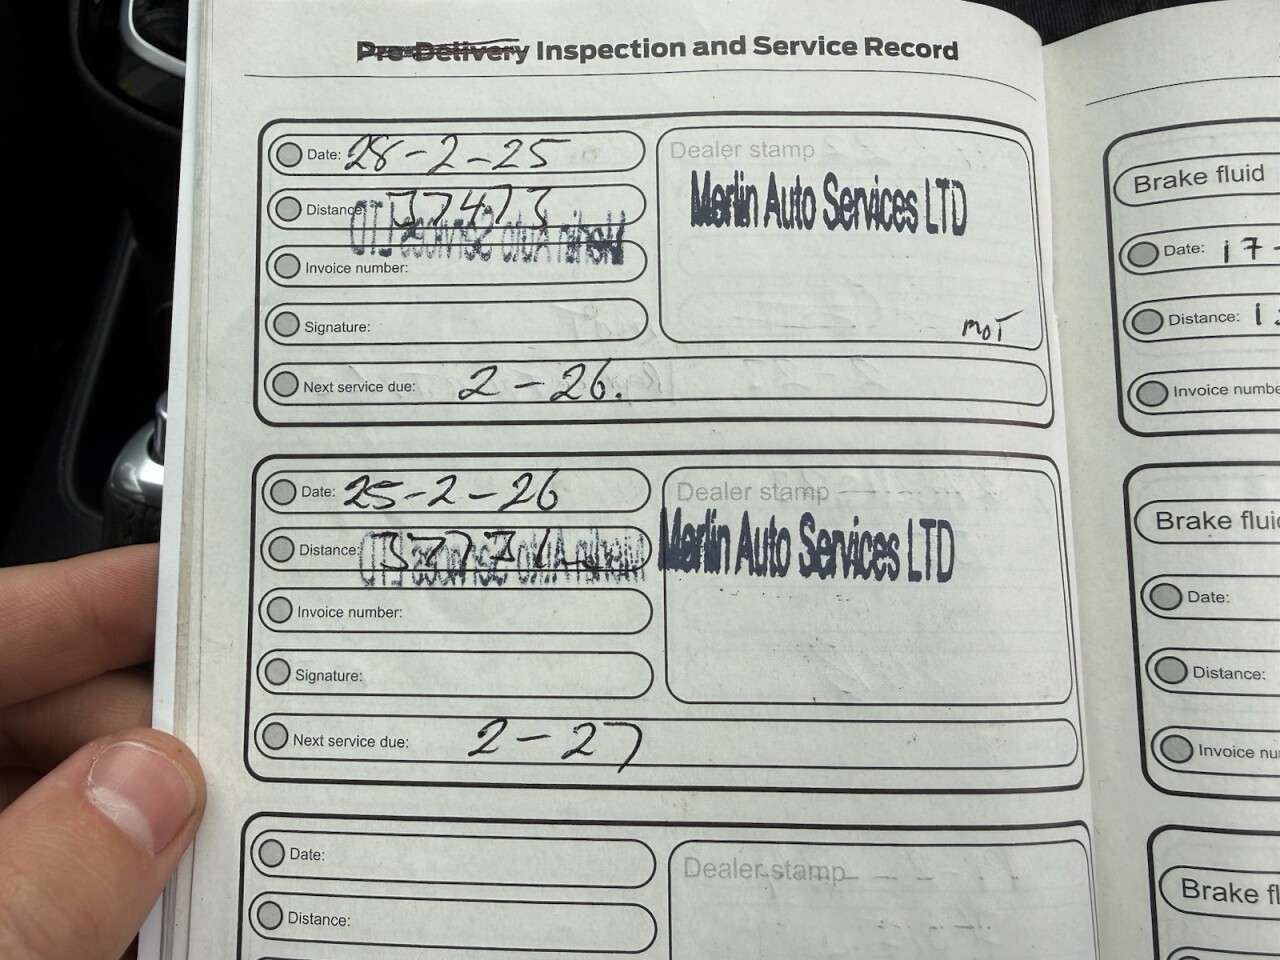 Pre-Delivery Inspection and Service Record
Date: 28-2-25
Distance: 37473
Invoice number:
Signature:
Next service due: 2-26.
Dealer stamp
Merlin Auto Services LTD
MOT
Date: 25-2-26
Distance:
Invoice number:
Signature:
Next service due: 2-27
Dealer stamp
Merlin Auto Services LTD
Date:
Distance:
Dealer stamp
Brake fluid
Date: 17-
Distance:
Invoice
Brake
Date:
Distance:
Invoice
Brake